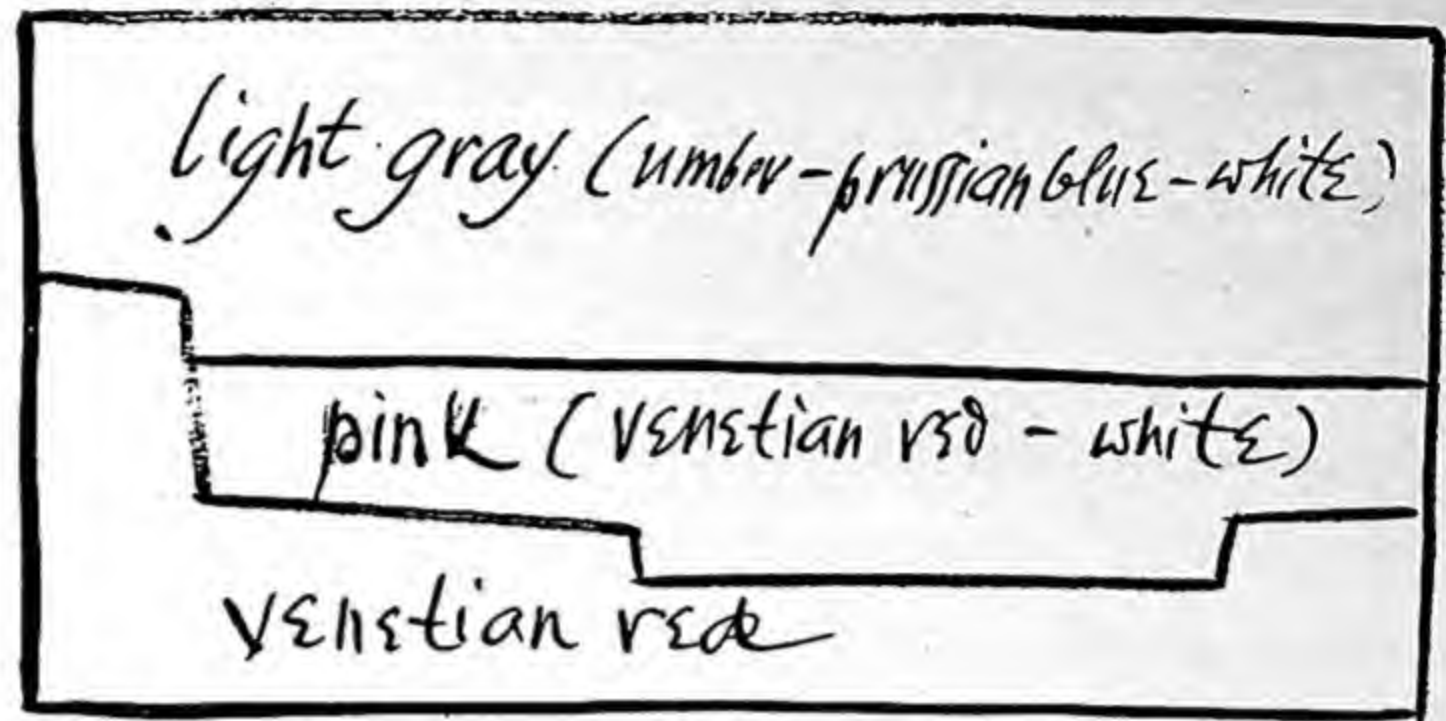 light gray (umber-prussian blue-white)
pink (venetian red - white)
venetian red